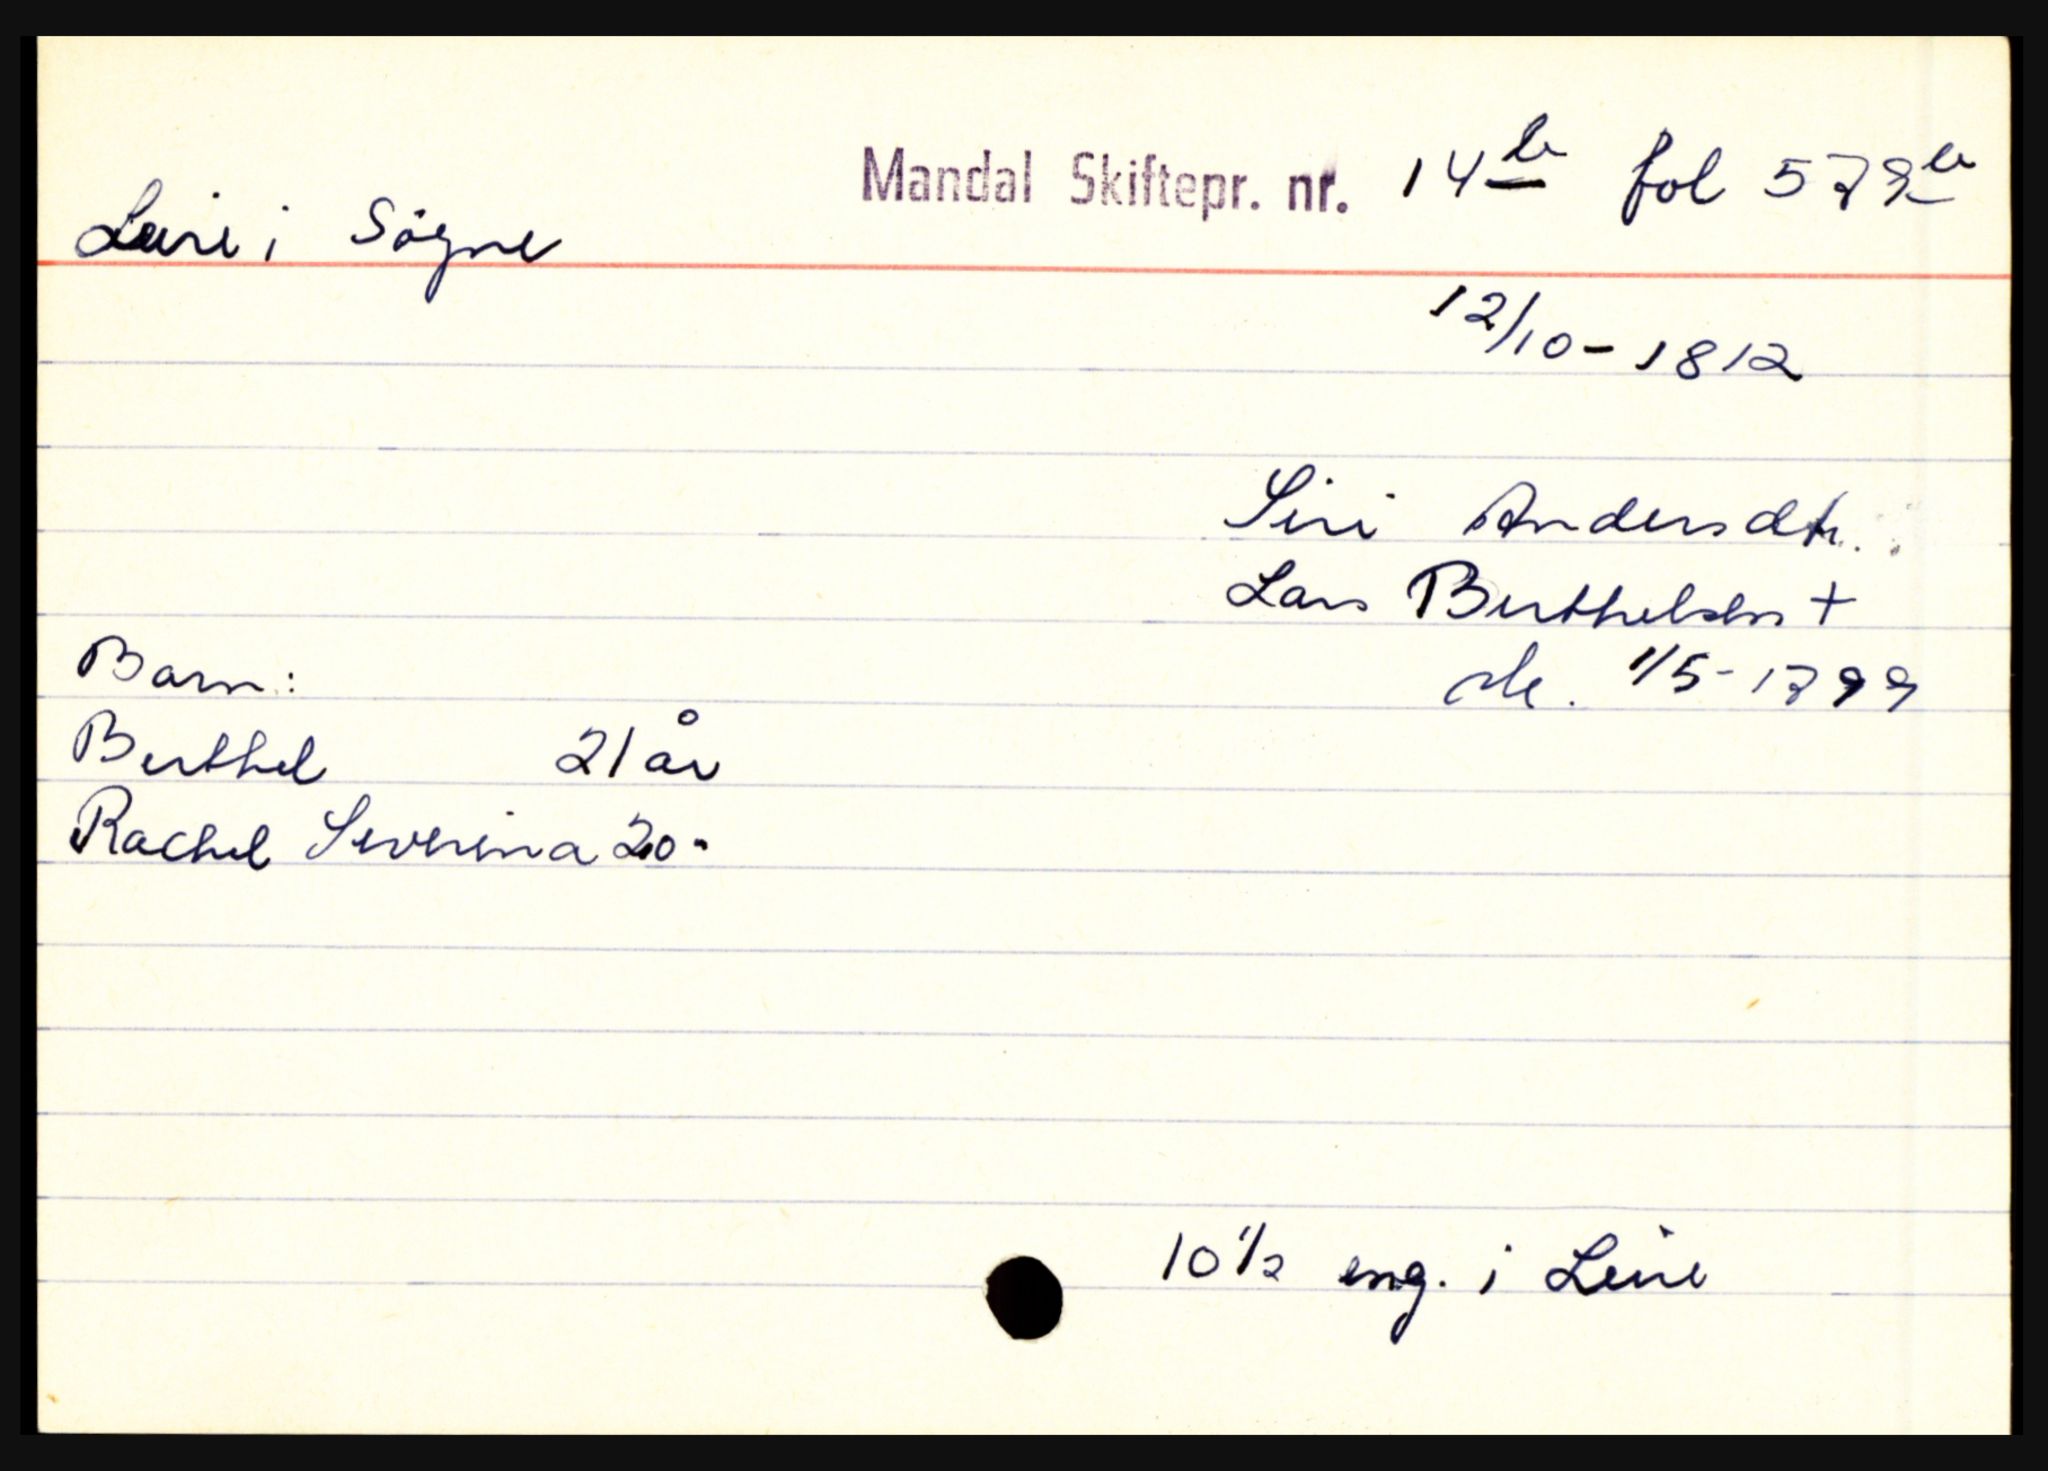 Mandal Skiftepr. nr. 14b fol 579b
Leire i Søgne
12/10-1812
Siri Andersdtr.
Lars Berthelsen +
sk. 1/5-1799
Barn:
Berthel 21 år
Rachel Severina 20 -
10 1/2 eng. i Leire